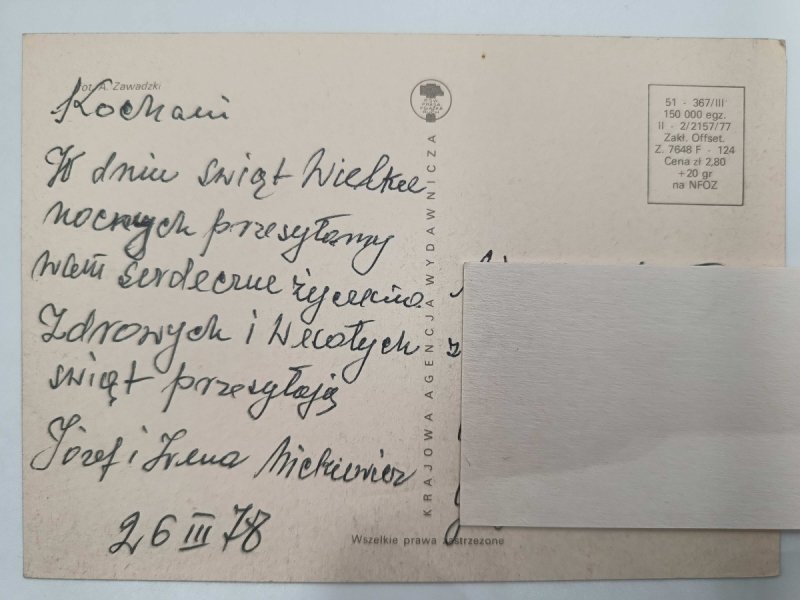 Fot. A. Zawadzki
Kochani
W dniu swiąt Wielka
nocnych przesyłamy
wam serdeczne życzenia
Zdrowych i Wesołych
swiąt przesyłają
Józef i Irena Mickiewicz
26 III 78
KRAJOWA AGENCJA WYDAWNICZA
Wszelkie prawa zastrzeżone
51 - 367/III
150 000 egz.
II - 2/2157/77
Zakł. Offset.
Z. 7648 F - 124
Cena zł 2,80
+ 20 gr
na NFOZ